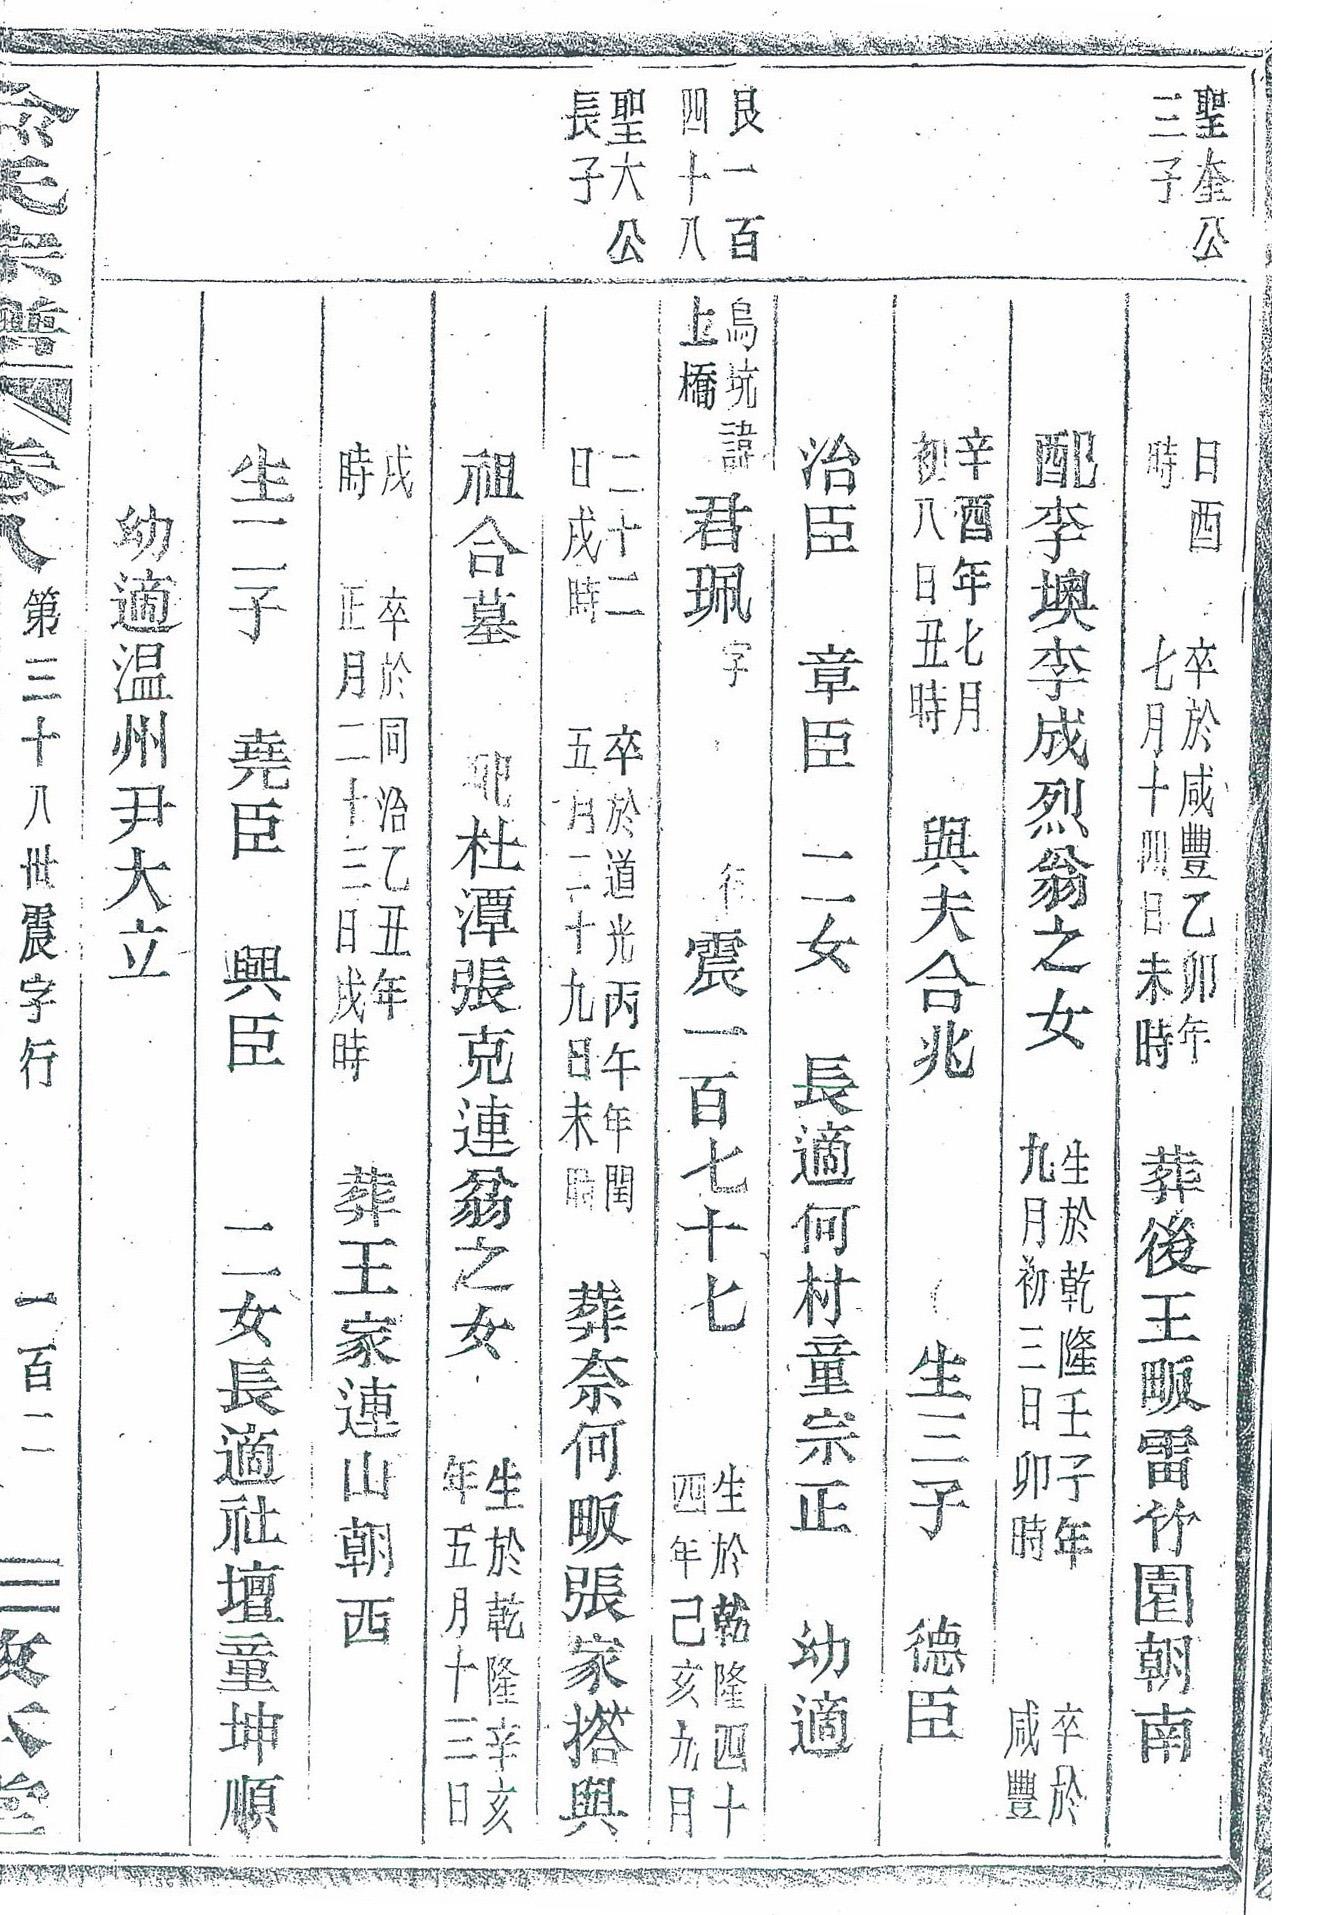 聖奎公
三子
日酉
時
卒於咸豐乙卯年
七月十四日未時
葬後王畈雷竹園朝南
配李墺李成烈翁之女
生於乾隆壬子年
九月初三日卯時
卒於
咸豐
辛酉年七月
初八日丑時
與夫合兆
生三子
德臣
治臣 章臣 二女 長適何村童宗正 幼適
艮一百
四十八
烏坑諱
上橋
君珮
字
行
震一百七十七
生於乾隆四十
四年己亥九月
聖大公
長子
二十二
日戌時
卒於道光丙午年閏
五月二十九日未時
葬奈何畈張家搭與
祖合墓
配杜潭張克連翁之女
生於乾隆辛亥
年五月十三日
戌
時
卒於同治乙丑年
正月二十三日戌時
葬王家連山朝西
生二子 堯臣 興臣 二女長適社壇童坤順
幼適温州尹大立
氏宗譜
卷八
第三十八世震字行
一百二